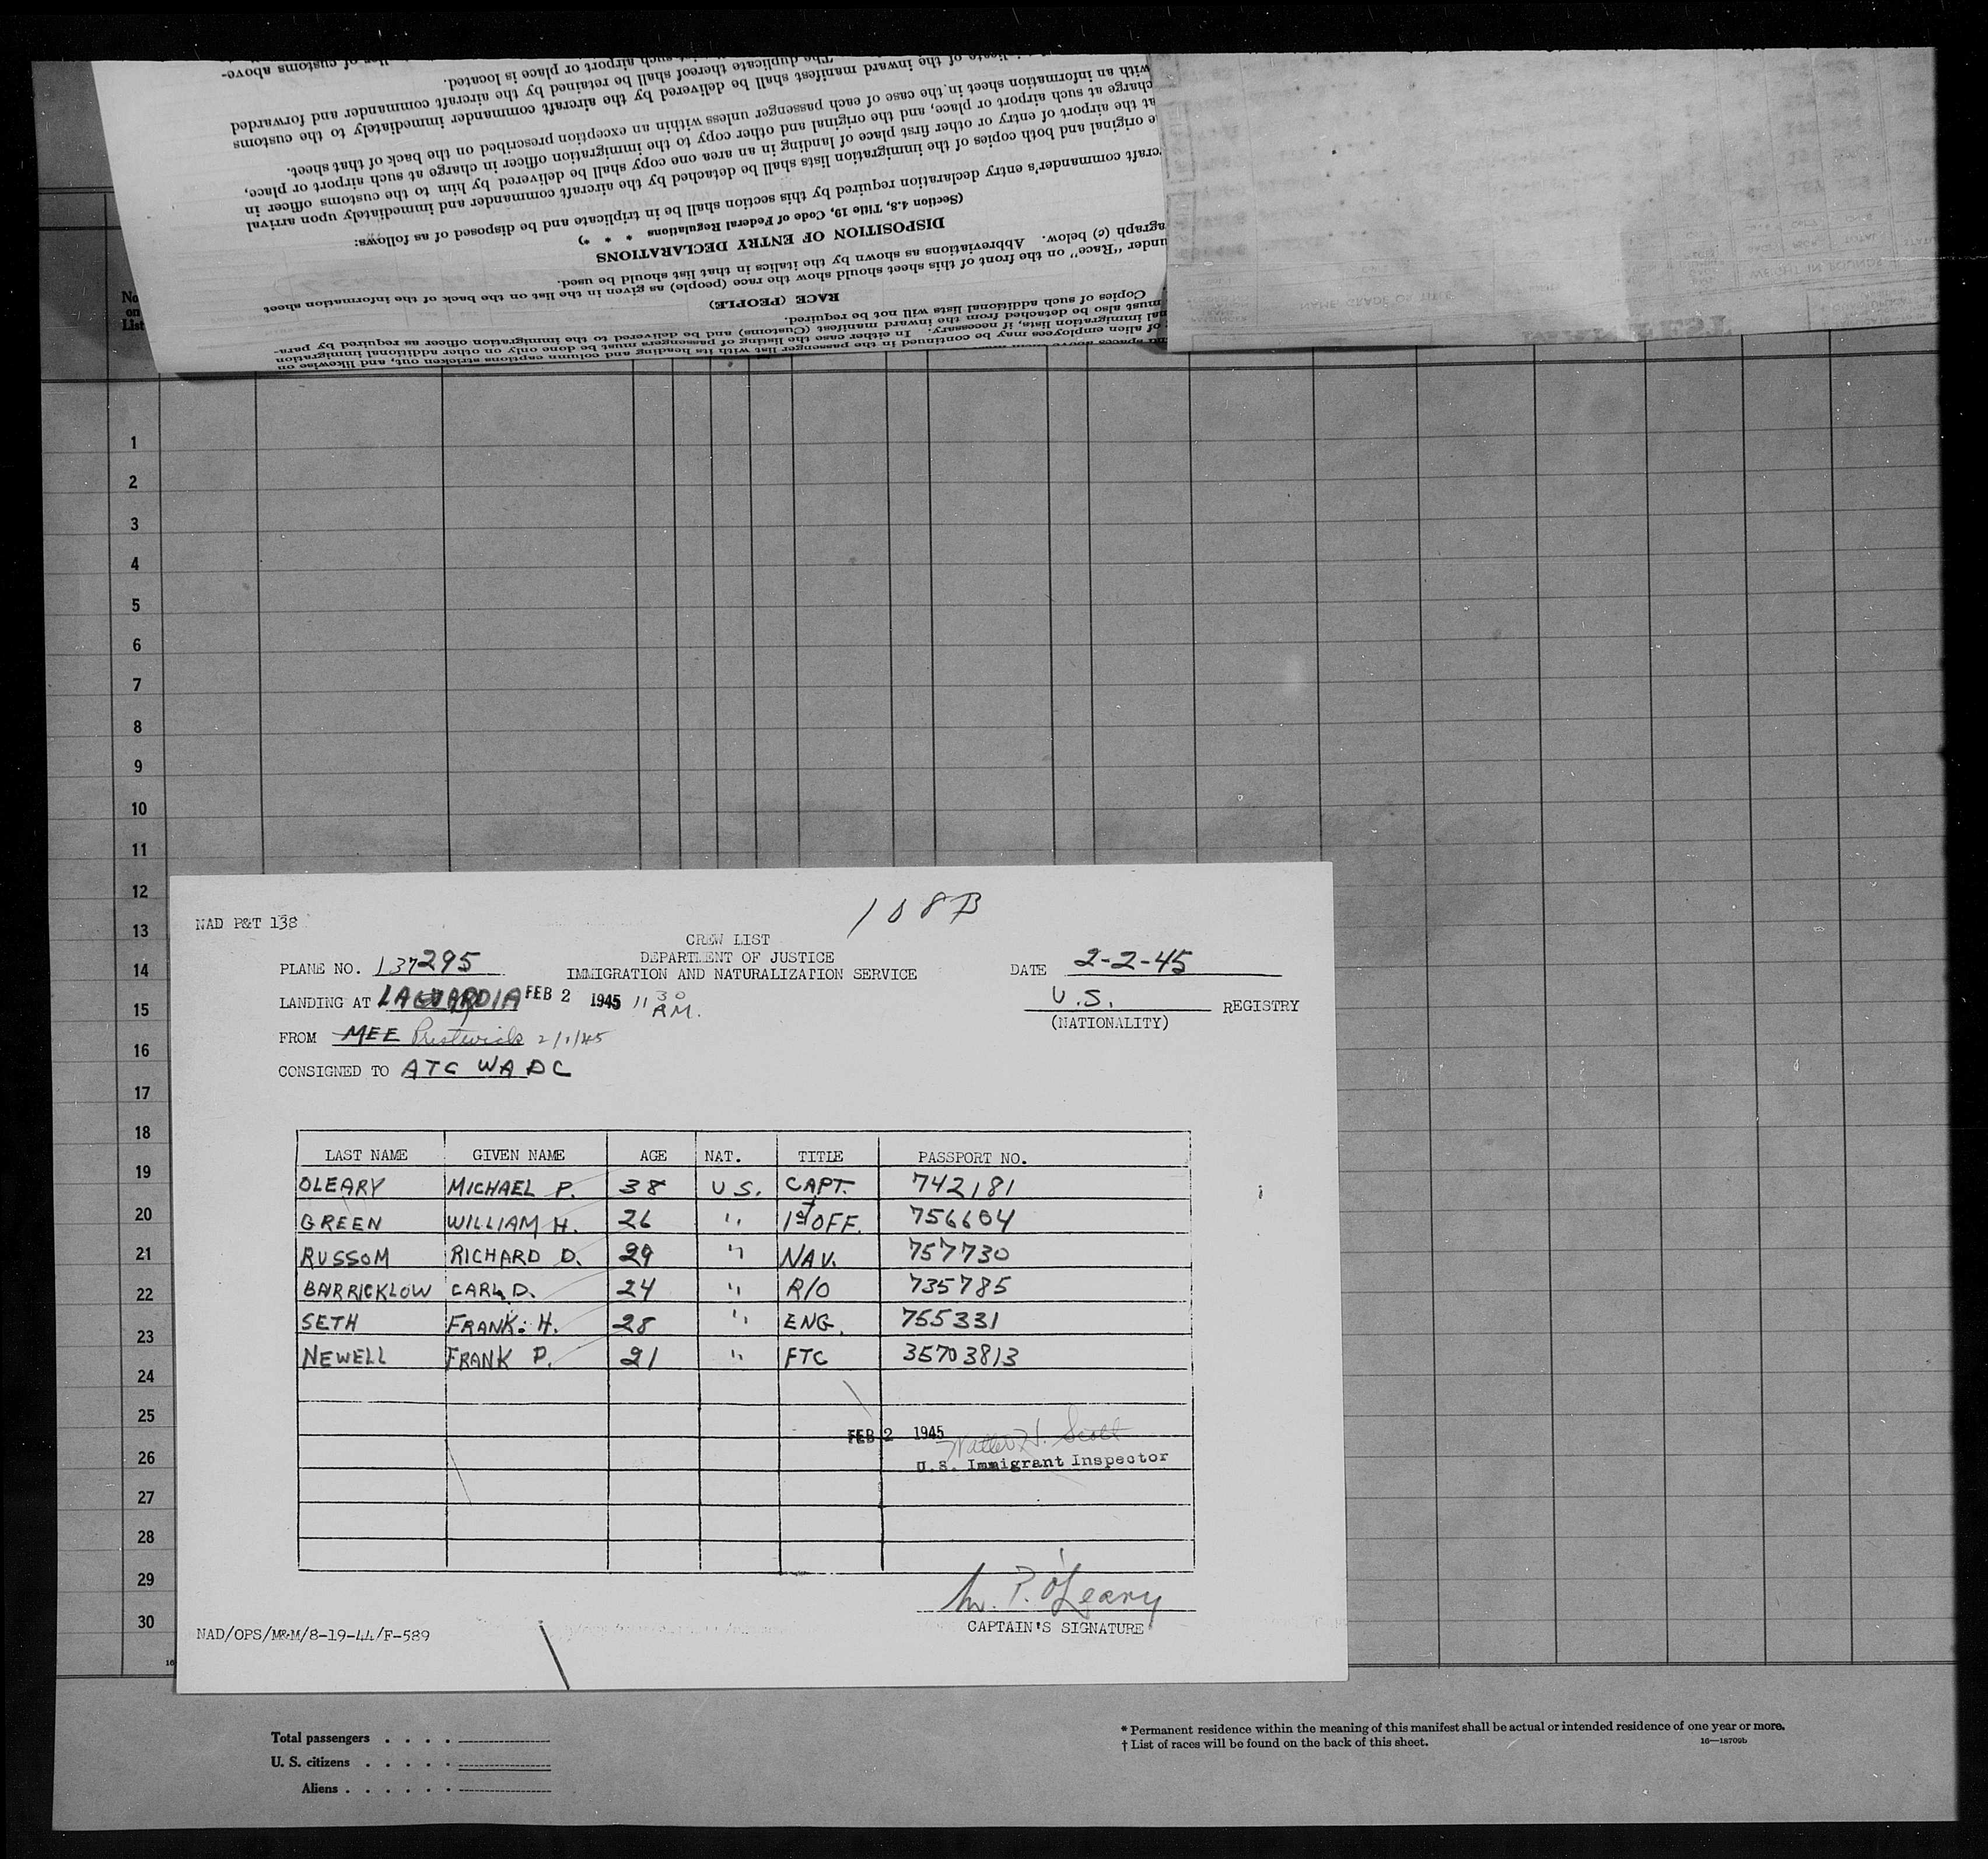 -ller of customs above-
The duplicate thereof shall be retained by the aircraft commander and forwarded
of the inward manifest shall be delivered by the aircraft commander immediately to the customs
such airport or place is located.
with an information sheet in the case of each passenger unless within an exception prescribed on the back of that sheet.
charge at such airport or place, and the original and other copy to the immigration officer in charge at such airport or place,
at the airport of entry or other first place of landing in an area one copy shall be delivered by him to the customs officer in
e original and both copies of the immigration lists shall be detached by the aircraft commander and immediately upon arrival
craft commander's entry declaration required by this section shall be in triplicate and be disposed of as follows:
(Section 4.8, Title 19, Code of Federal Regulations * * *)
DISPOSITION OF ENTRY DECLARATIONS
agraph (c) below. Abbreviations as shown by the italics in that list should be used.
under "Race" on the front of this sheet should show the race (people) as given in the list on the back of the information sheet
RACE (PEOPLE)
Copies of such additional lists will not be required.
must also be detached from the inward manifest (Customs) and be delivered to the immigration officer as required by para-
nal immigration lists, if necessary. In either case the listing of passengers must be done only on other additional immigration
of alien employees may be continued in the passenger list with its heading and column captions stricken out, and likewise on
No.
on
List
1
2
3
4
5
6
7
8
9
10
11
12
13
14
15
16
17
18
19
20
21
22
23
24
25
26
27
28
29
30
108B
NAD P&T 138
CREW LIST
DEPARTMENT OF JUSTICE
IMMIGRATION AND NATURALIZATION SERVICE
PLANE NO. 137295
DATE 2-2-45
LANDING AT LAGUARDIA FEB 2 1945 11 30 A.M.
U.S. REGISTRY
(NATIONALITY)
FROM MEE Prestwick 2/1/45
CONSIGNED TO ATC WADC
LAST NAME GIVEN NAME AGE NAT. TITLE PASSPORT NO.
OLEARY MICHAEL P. 38 U.S. CAPT. 742181
GREEN WILLIAM H. 26 " 1st OFF. 756604
RUSSOM RICHARD D. 29 " NAV. 757730
BARRICKLOW CARL D. 24 " R/O 735785
SETH FRANK. H. 28 " ENG. 755331
NEWELL FRANK P. 21 " FTC 35703813
FEB 2 1945 Walter H. Scott
U.S. Immigrant Inspector
M. P. O'Leary
CAPTAIN'S SIGNATURE
NAD/OPS/MR-M/8-19-44/F-589
16
Total passengers . . . .
U. S. citizens . . . . .
Aliens . . . . . .
* Permanent residence within the meaning of this manifest shall be actual or intended residence of one year or more.
† List of races will be found on the back of this sheet.
16—18709b